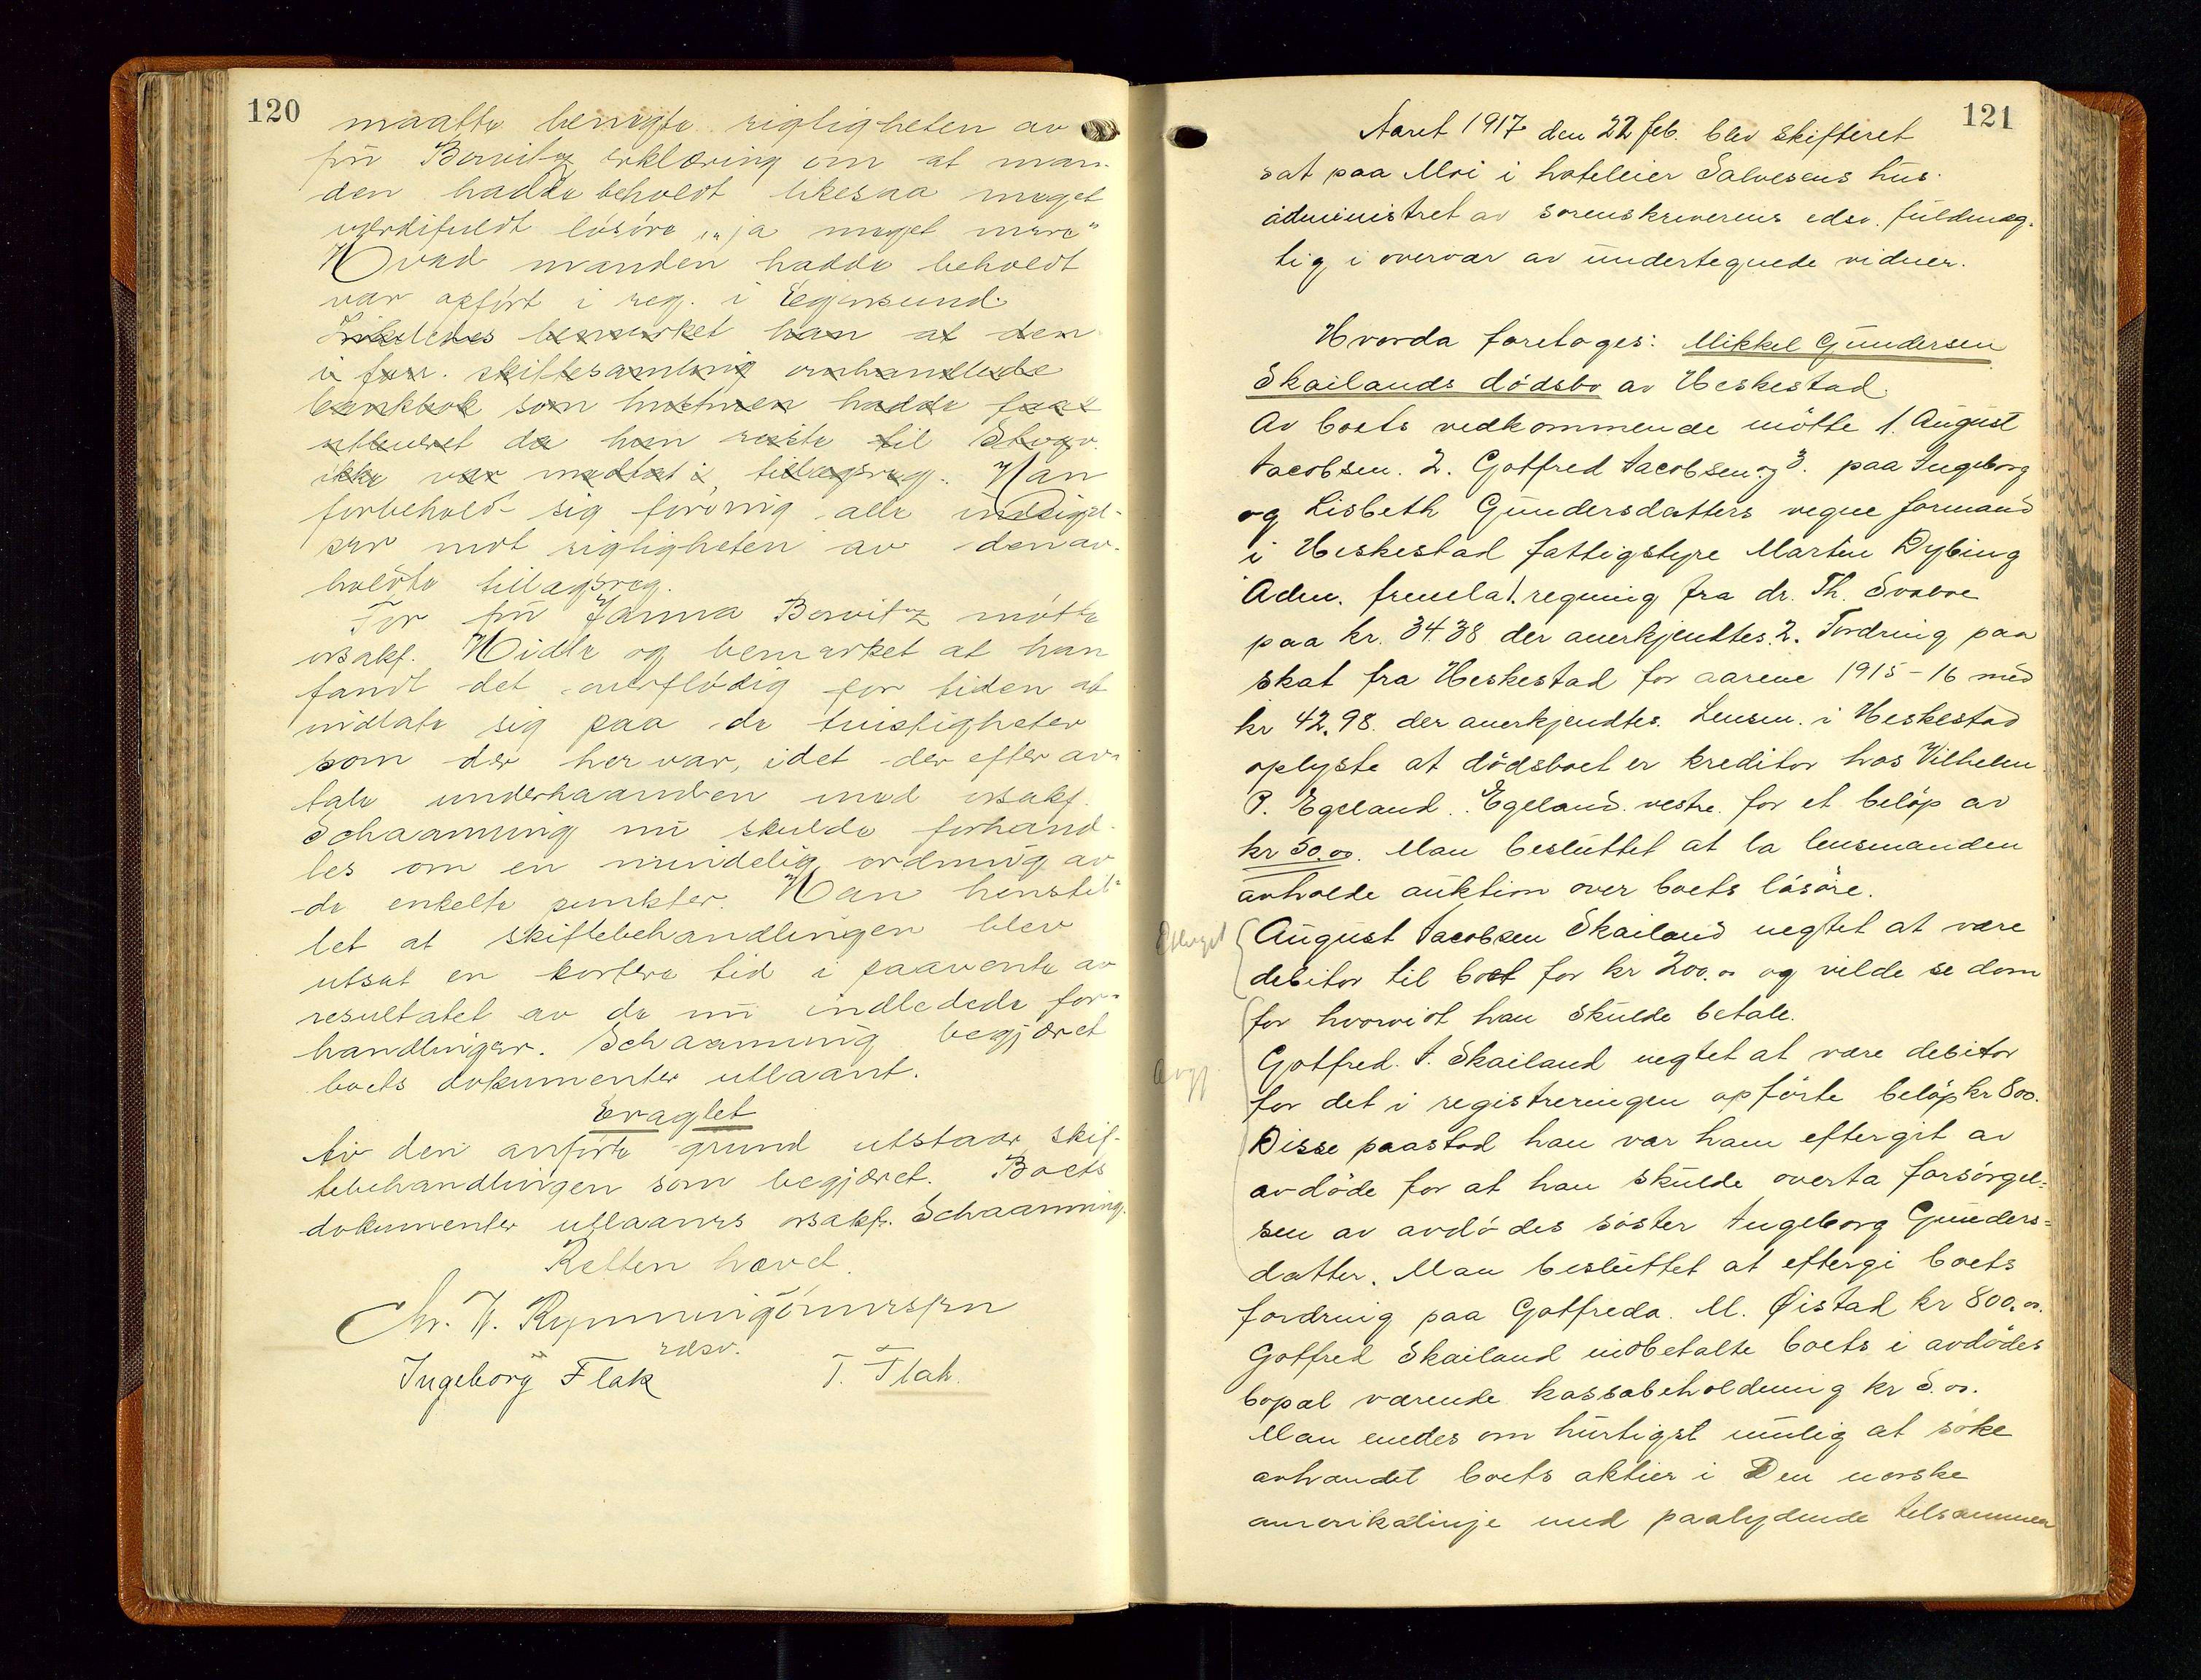 120
maatte benegte rigtigheten av
fru Borvitz erklæring om at man-
den hadde beholdt likesaa meget
værdifuldt lösöre, "ja meget mere"
Hvad manden hadde beholdt
var opfört i reg. i Egersund.
Likeledes bemerket han at den
i forr. skiftesamling omhandlede
bankbok som hustruen hadde faat
utleveret da hun reiste til
ikke var medtat i tillægsreg. Han
forbeholdt sig forövrig alle indsigel-
ser mot rigtigheten av den av-
holdte tillægsreg.
For fru Janna Borvitz mötte
orsakf. Hidle og bemerket at han
fandt det overflödig for tiden at
indlate sig paa de tvistigheter
som der her var, idet der efter av-
tale underhaanden med orsakf.
Schaanning nu skulde forhand-
les om en mindelig ordning av
de enkelte punkter. Han henstil-
let at skiftebehandlingen blev
utsat en kortere tid i paavente av
resultatet av de nu indledede for-
handlinger. Schaanning begjæret
boets dokumenter utlaant.
Eragtet
Av den anförte grund utstaar skif-
tebehandlingen som begjæret. Boets
dokumenter utlaanes orsakf. Schaanning.
Retten hævet.
Chr. F. Rynning Tönnesen
edsv.
Ingeborg Flak T. Flak.
121
Aaret 1917 den 22 feb. blev skifteret
sat paa Moi i hoteleier Salvesens hus.
administret av sorenskriverens edsv. fuldmæg-
tig i overvær av undertegnede vidner.
Hvorda foretoges: Mikkel Gundersen
Skailands dödsbo av Heskestad.
Av boets vedkommende mötte 1. August
Jacobsen. 2. Gotfred Jacobsen og 3. paa Ingeborg
og Lisbeth Gundersdatters vegne formand
i Heskestad fattigstyre Martin Dybing
Adm. fremla 1. regning fra dr. Th. Svaboe
paa kr. 34.38 der anerkjendtes. 2. Fordring paa
skat fra Heskestad for aarene 1915-16 med
kr 42.98. der anerkjendtes. Lensm. i Heskestad
oplyste at dödsboet er kreditor hos Vilhelm
P. Egeland. Egeland vestre for et belöp av
kr 50.00. Man besluttet at la lensmanden
avholde auktion over boets lösöre.
August Jacobsen Skailand negtet at være
debitor til boet for kr 200.00 og vilde se dom
for hvorvidt han skulde betale.
Gotfred. J. Skailand negtet at være debitor
for det i registreringen opförte belöp kr 800.
Disse paastod han var ham eftergit av
avdöde for at han skulde overta forsörgel=
sen av avdödes söster Ingeborg Gunders=
datter. Man besluttet at eftergi boets
fordring paa Gotfreda. M. Øistad kr 800.00.
Gotfred Skailand indbetalte boets i avdödes
bopæl værende kassabeholdning kr 5.00.
Man enedes om hurtigst mulig at söke
avhændet boets aktier i Den norske
amerikalinje med paalydende tilsammen